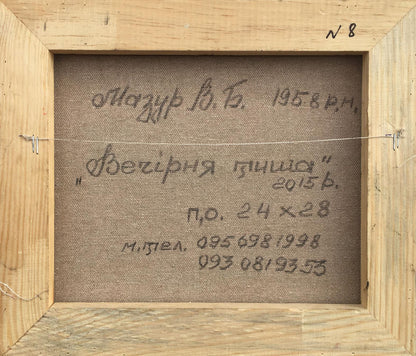 N 8
Мазур В. Б. 1958 р.н.
"Вечірня тиша"
2015р.
п,о. 24 х 28
м.тел. 0956981998
0930819353